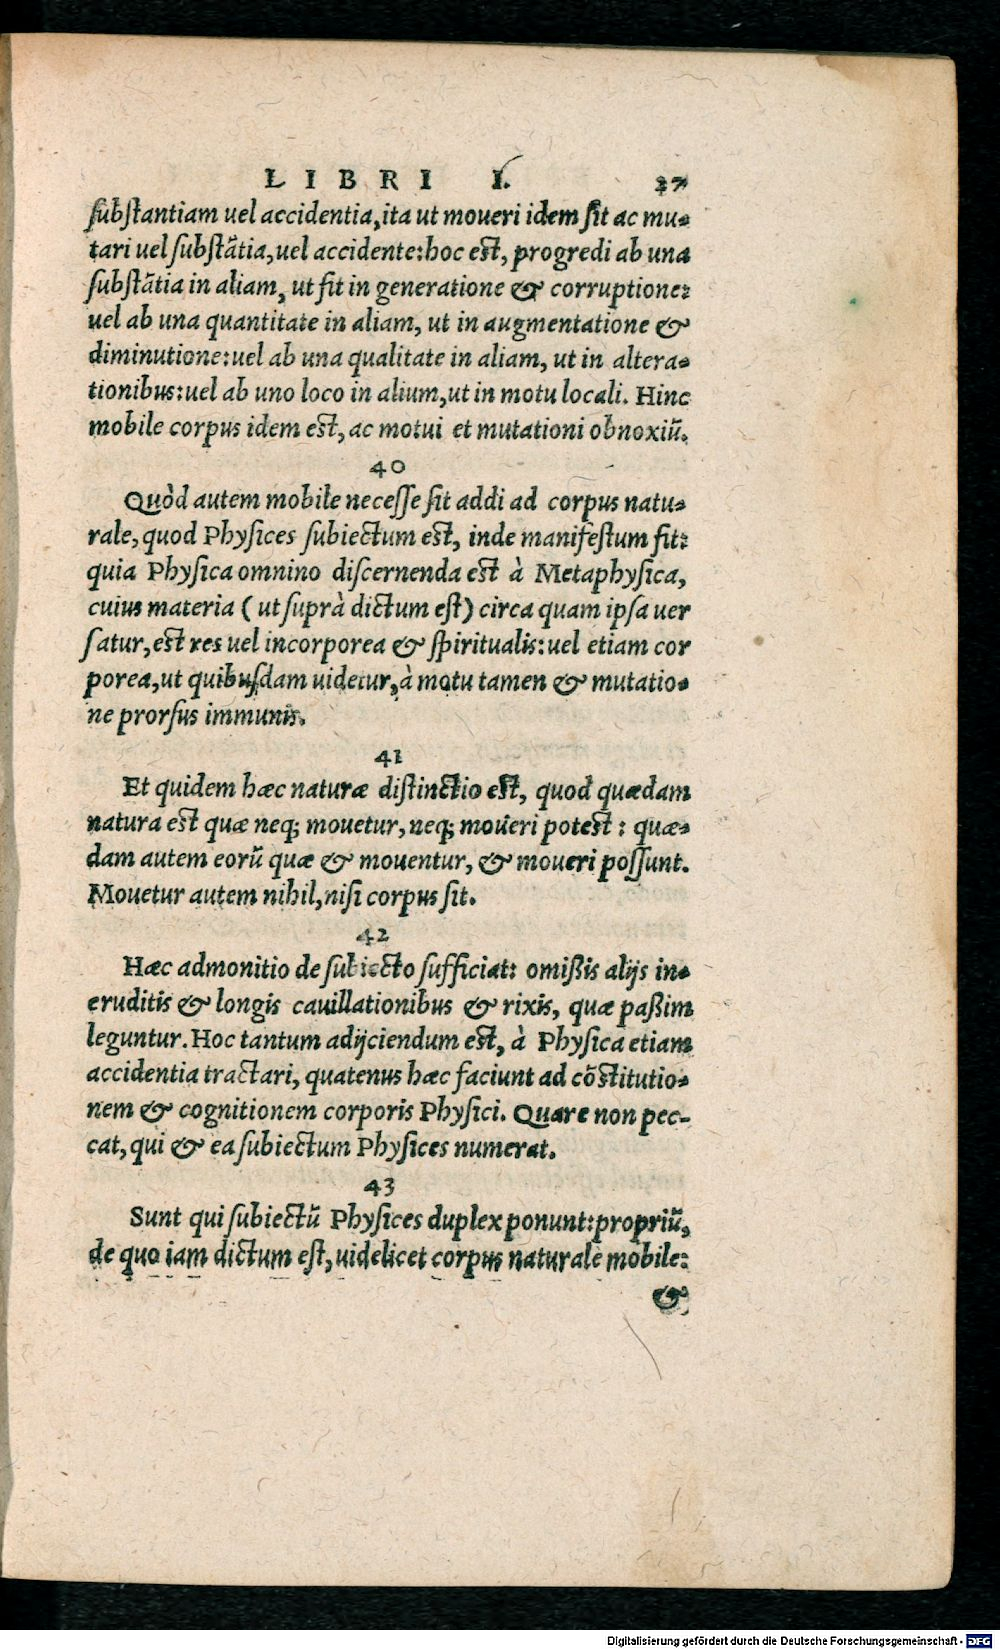 LIBRI I. 27
ſubſtantiam uel accidentia, ita ut moueri idem ſit ac mu-
tari uel ſubſtātia, uel accidente: hoc est, progredi ab una
ſubſtātia in aliam, ut fit in generatione & corruptione:
uel ab una quantitate in aliam, ut in augmentatione &
diminutione: uel ab una qualitate in aliam, ut in altera-
tionibus: uel ab uno loco in alium, ut in motu locali. Hinc
mobile corpus idem est, ac motui et mutationi obnoxiū.
40
Quòd autem mobile neceſſe ſit addi ad corpus natu-
rale, quod Phyſices ſubiectum est, inde manifeſtum fit:
quia Phyſica omnino diſcernenda est à Metaphyſica,
cuius materia (ut ſuprà dictum eſt) circa quam ipſa uer
ſatur, est res uel incorporea & ſpiritualis: uel etiam cor
porea, ut quibuſdam uidetur, à motu tamen & mutatio-
ne prorſus immunis.
41
Et quidem hæc naturæ diſtinctio est, quod quædam
natura est quæ neq; mouetur, neq; moueri potest: quæ-
dam autem eorū quæ & mouentur, & moueri poſſunt.
Mouetur autem nihil, niſi corpus ſit.
42
Hæc admonitio de ſubiecto ſufficiat: omißis alijs in-
eruditis & longis cauillationibus & rixis, quæ paßim
leguntur. Hoc tantum adijciendum est, à Phyſica etiam
accidentia tractari, quatenus hæc faciunt ad cōstitutio-
nem & cognitionem corporis Phyſici. Quare non pec-
cat, qui & ea ſubiectum Phyſices numerat.
43
Sunt qui ſubiectū Phyſices duplex ponunt: propriū,
de quo iam dictum eſt, uidelicet corpus naturale mobile:
&
Digitalisierung gefördert durch die Deutsche Forschungsgemeinschaft - DFG